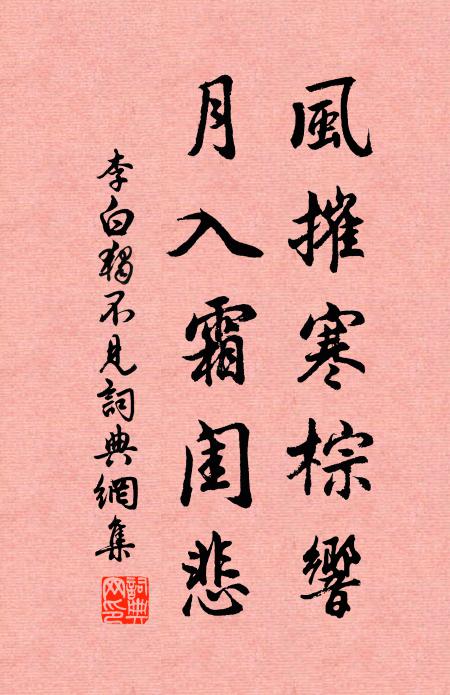 風摧寒棕響
月入霜闺悲
李白獨不見詞典網集
詞典网印